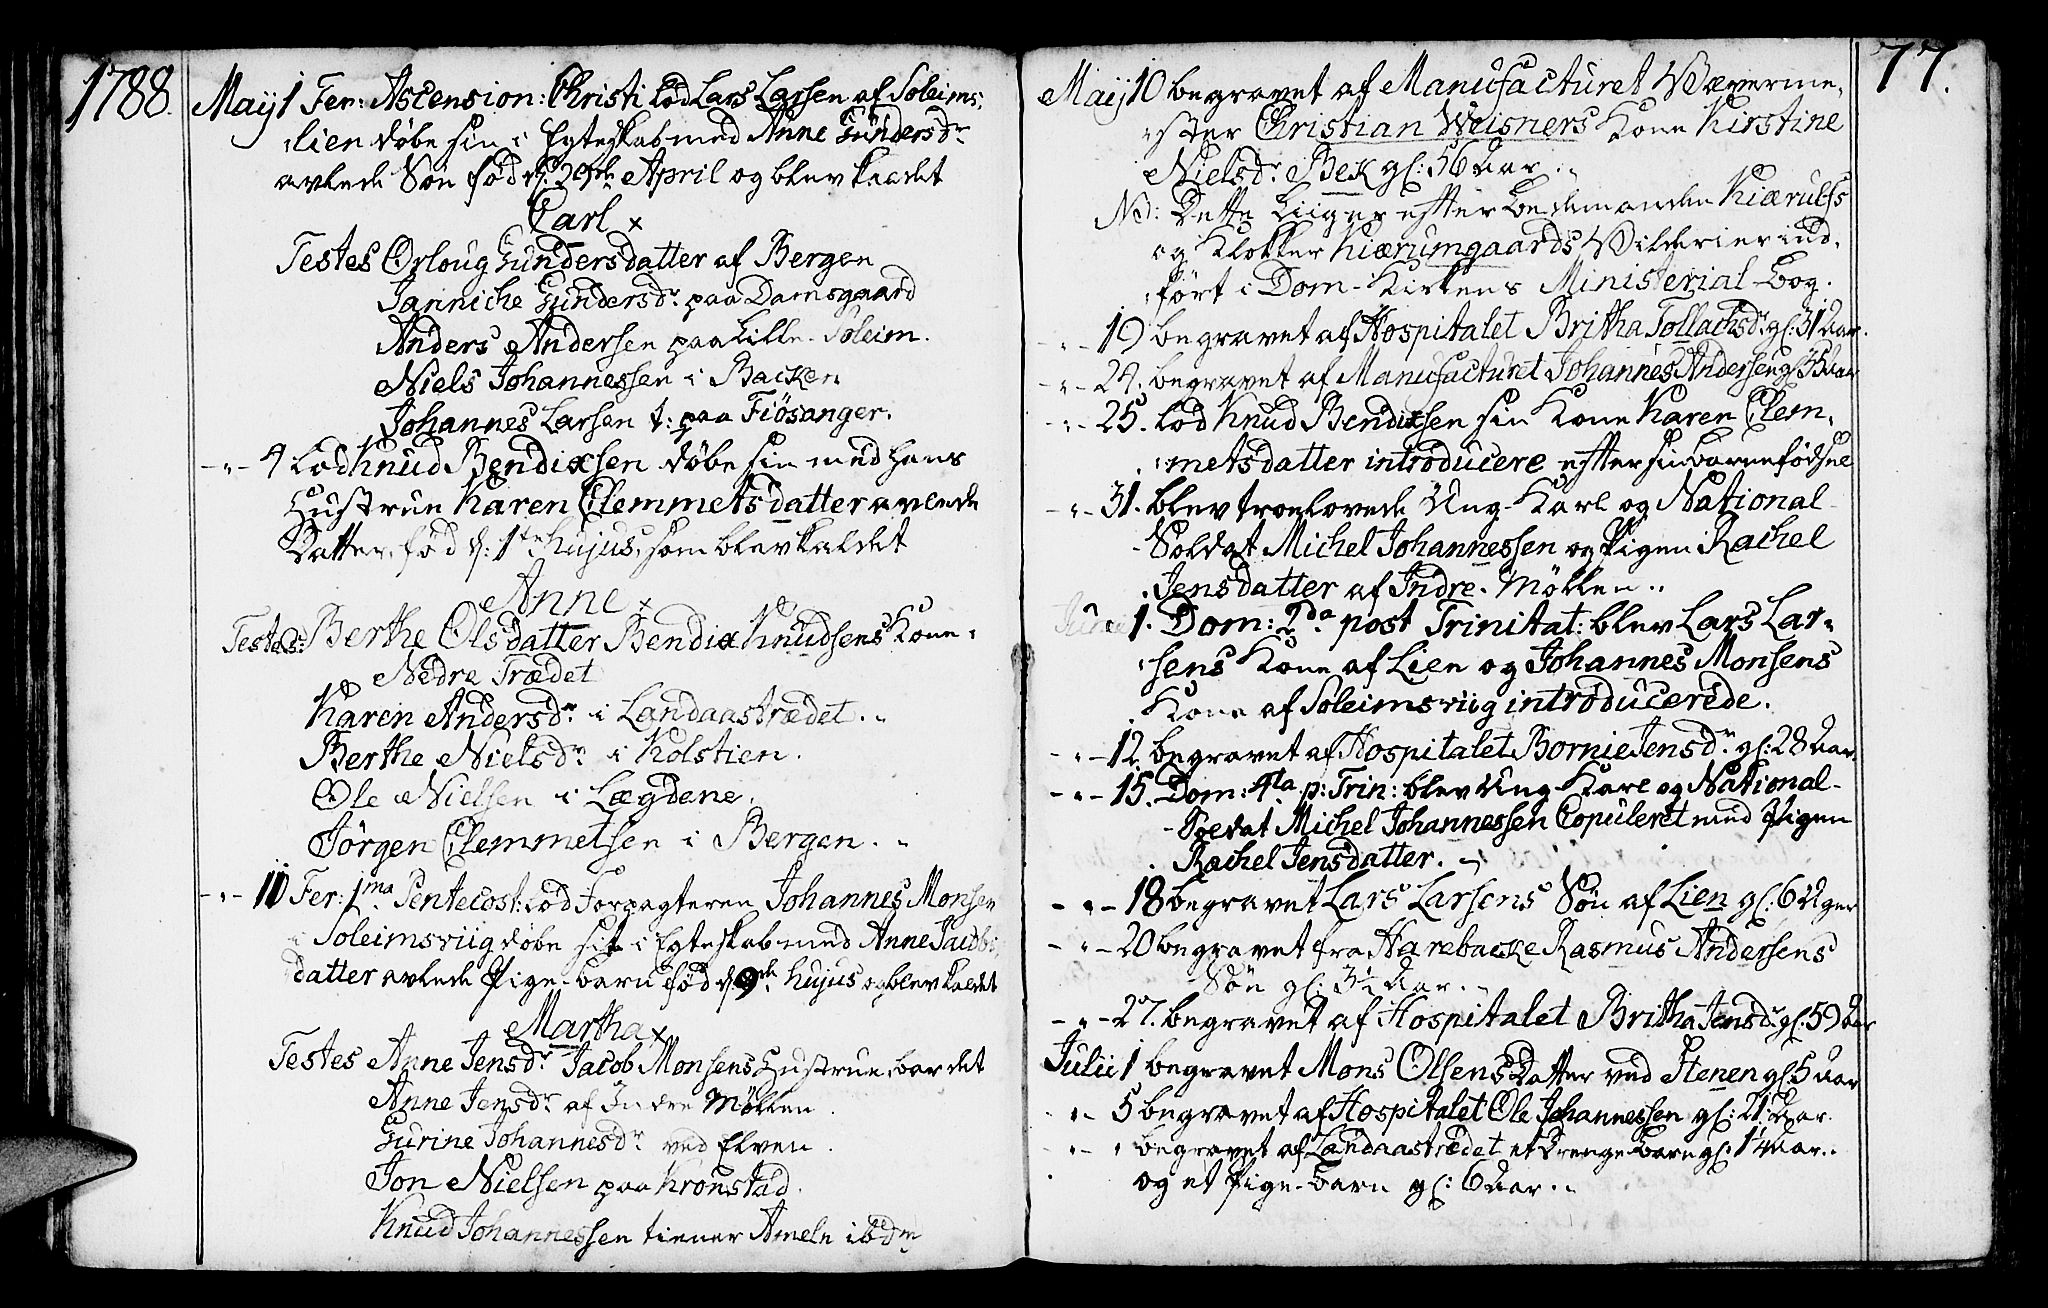 1788.
Maij 1 Fer: Ascension: Christi lod Lars Larsen af Soleims,
lien döbe sin i Egteskab med Anne Gundersdr
avlede Sön föd d: 29de April og blev kaldet
Carl x
Testes Orloug Gundersdatter af Bergen
Janniche Gundersdr paa Damsgaard
Anders Andersen paa Lille-Soleim.
Niels Johannessen i Backen
Johannes Larsen t: paa Fiösanger.
-"- 4 Lod Knud Bendixsen döbe sin med hans
Hustrue Karen Clemmetsdatter avlede
Datter, föd d: 1te hujus, som blev kaldet
Anne x
Testes: Berthe Olsdatter Bendix Knudsens Kone
Nedre Trædet
Karen Andersdr i Landaastrædet."
Berthe Nielsdr i Kolstien.
Ole Nielsen i Lægdene.
Jörgen Clemmetsen i Bergen."
-"- 11 Fer: 1ma Pentecost: lod Forpagteren Johannes Monsen
i Soleimsviig döbe sit i Egteskab med Anne Jacobs,
datter avlede Pige-barn föd d. 9de hujus og blev kaldet
Martha x
Testes Anne Jensdr Jacob Monsens Hustrue, bar det
Anne Jensdr af Indre Möllen.
Gurine Johannesdr ved Elven.
Jon Nielsen paa Kronstad.
Knud Johannessen tiener Ameln ibdm
77.
Maij 10 begravet af Manufacturet Væverme,
ster Christian Weisners Kone Kirstine
Nielsdr Bek gl: 56 Aar."
NB: Dette Liig er efter bedemanden Kiærulfs
og Klokker Kiærumgaards Bilderier ind,
fört i Dom-Kirkens Ministerial-Bog.
-"- 19 begravet af Hospitalet Britha Tollachsdr gl: 31 Aar.
-"- 24. begravet af Manufacturet Johannes Andersen gl: 35 Aar
-"- 25. lod Knud Bendixsen sin Kone Karen Clem,
metsdatter introducere efter sin barnefödsel
-"- 31. blev troelovede Ung-Karl og National-
Soldat Michel Johannessen og Pigen Rachel
Jensdatter af Indre-Möllen."
Junii 1. Dom: 2da post Trinitat: blev Lars Lar,
sens Kone af Lien og Johannes Monsens
Kone af Soleimsviig introducerede.
-"- 12 begravet af Hospitalet Bornie Jensdr gl: 28 Aar.
-"- 15. Dom: 4ta p: Trin: blev Ung-Karl og National-
Soldat Michel Johannessen Copuleret med Pigen
Rachel Jensdatter."
-"- 18 begravet Lars Larsens Sön af Lien gl: 6 Uger
-"- 20 begravet fra Harebacke Rasmus Andersens
Sön gl: 3½ Aar."
-"- 27. begravet af Hospitalet Britha Jensdr gl: 59 Aar
Julii 1 begravet Mons Olsens Datter ved Stenen gl: 5 Aar
-"- 5 begravet af Hospitalet Ole Johannessen gl: 21 Aar.
-"- " begravet af Landaastrædet et Drenge barn gl: 1¼ Aar."
og et Pige-barn gl: 6 Aar."